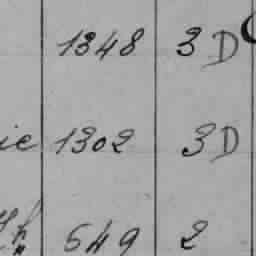 1348 3D
ie 1302 3D
549 2